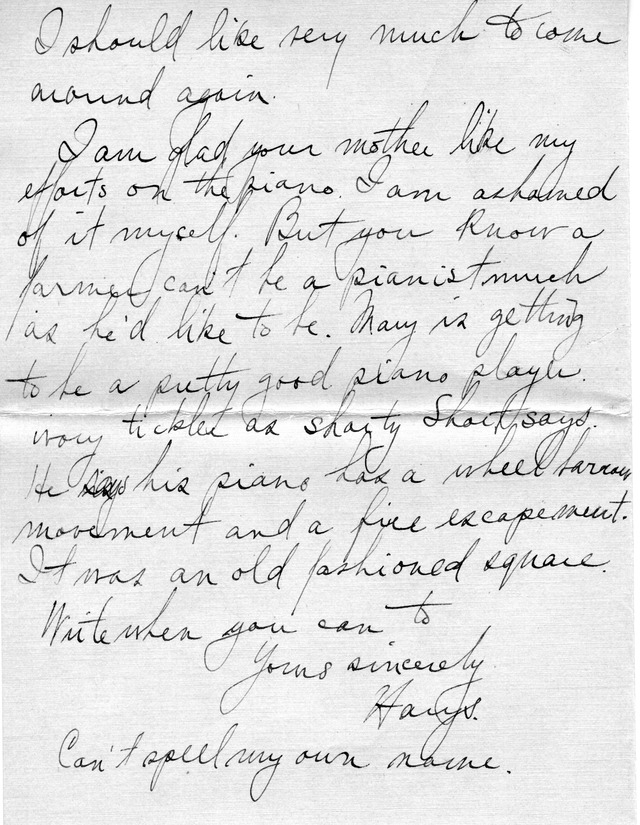 I should like very much to come
around again.
I am glad your mother like my
efforts on the piano. I am ashamed
of it myself. But you know a
farmer can't be a pianist much
as he'd like to be. Mary is getting
to be a pretty good piano player.
ivory tickler as shorty Short says.
He says his piano has a wheel barrow
movement and a fire escapement.
It was an old fashioned square.
Write when you can to
Yours sincerely
Harys.
Can't spell my own name.